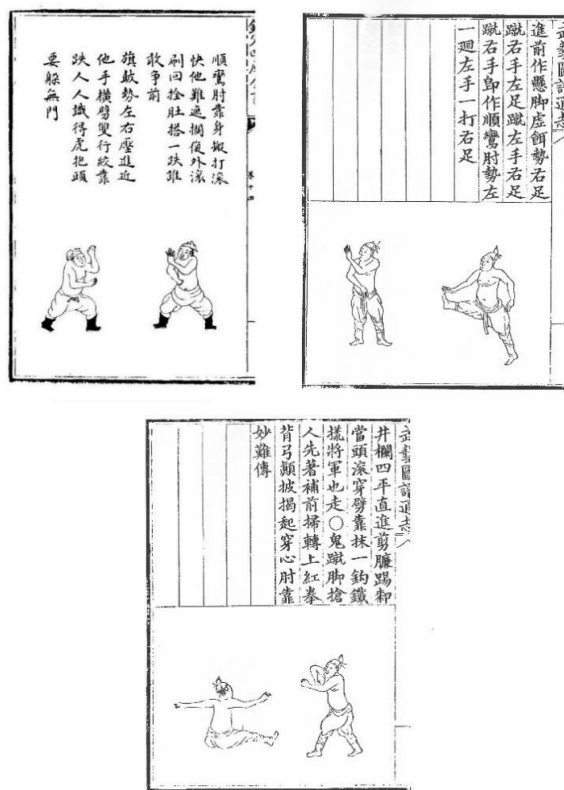 卷十四
順鸞肘靠身搬打滾
快他難遮攔復外滾
刷回拴肚搭一跌誰
敢爭前
旗鼓勢左右壓進近
他手橫劈雙行絞靠
跌人人識得虎抱頭
要躲無門
武藝圖譜通志
進前作懸脚虛餌勢右足
蹴右手左足蹴左手右足
蹴右手卽作順鸞肘勢左
一廻左手一打右足
武藝圖譜通志
井欄四平直進剪臁踢厀
當頭滾穿劈靠抹一鉤鐵
㨾將軍也走○鬼蹴脚搶
人先著補前掃轉上紅拳
背弓顚披揭起穿心肘靠
妙難傳